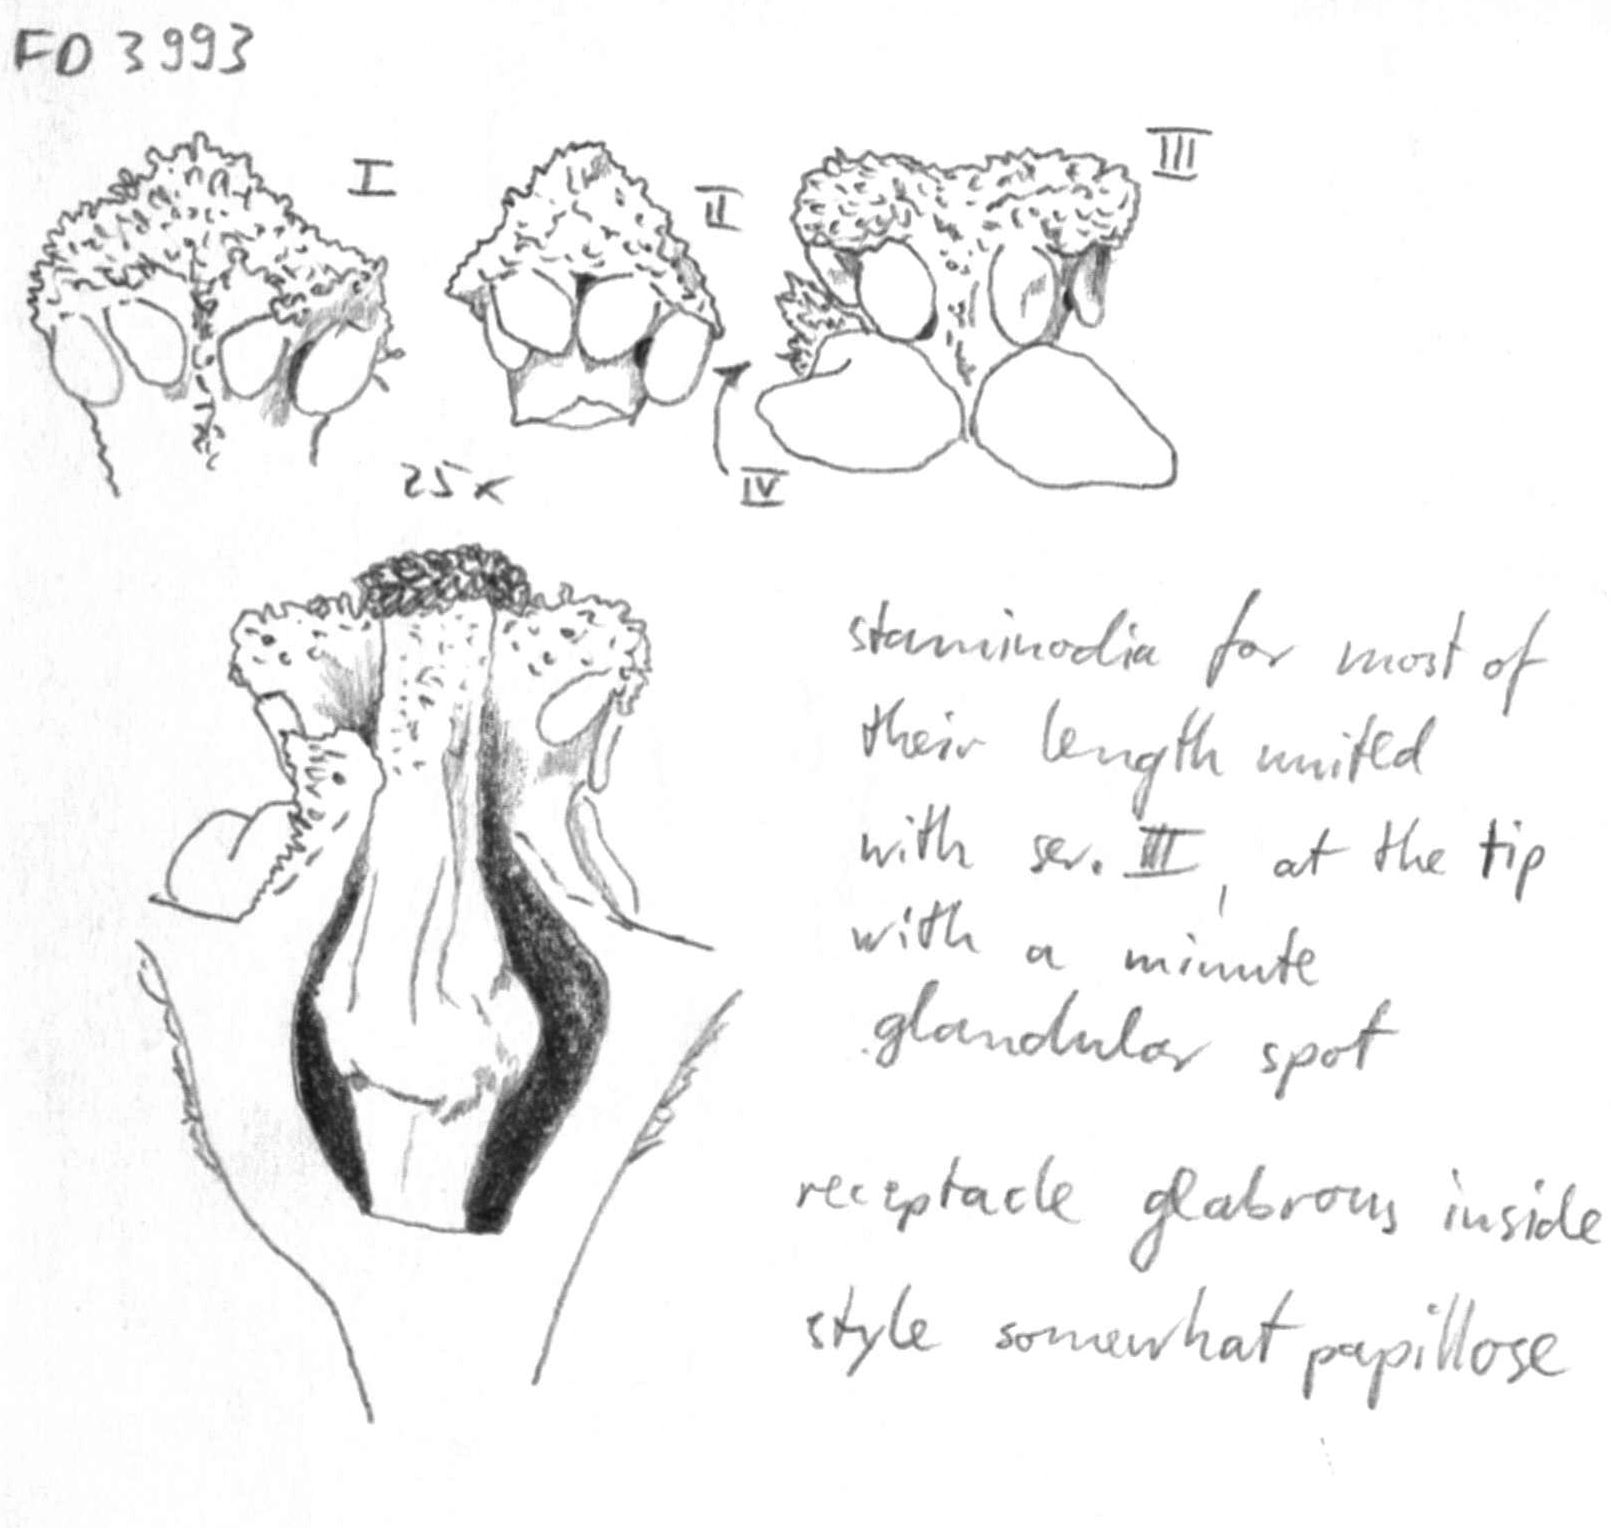 FD 3993
I
II
III
IV
25x
staminodia for most of
their length united
with ser. III, at the tip
with a minute
glandular spot
receptacle glabrous inside
style somewhat papillose